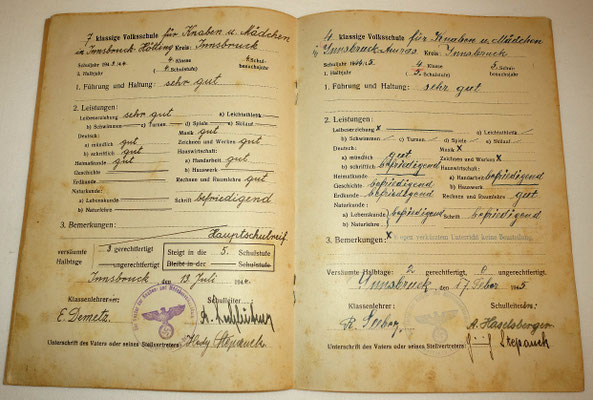 7 klassige Volksschule für Knaben u. Mädchen
in Innsbruck-Hötting Kreis: Innsbruck
Schuljahr 1943/44 4 Klasse 4. Schul-
2. Halbjahr Schulstufe) besuchsjahr
1. Führung und Haltung: sehr gut
2. Leistungen:
Leibeserziehung sehr gut a) Leichtathletik
b) Schwimmen c) Turnen d) Spiele e) Skilauf
Deutsch: Musik gut
a) mündlich gut Zeichnen und Werken gut
b) schriftlich gut Hauswirtschaft:
Heimatkunde gut a) Handarbeit gut
Geschichte b) Hauswerk
Erdkunde Rechnen und Raumlehre gut
Naturkunde:
a) Lebenskunde Schrift befriedigend
b) Naturlehre
3. Bemerkungen:
Hauptschulreif.
versäumte 8 gerechtfertigt Steigt in die 5. Schulstufe
Halbtage ungerechtfertigt Bleibt in der Schulstufe
Innsbruck, den 13. Juli 1944
Klassenlehrer: Schulleiter:
E. Demetz
Unterschrift des Vaters oder seines Stellvertreters: Hedy Stepanek
4 klassige Volksschule für Knaben u. Mädchen
in Innsbruck Amras Kreis: Innsbruck
Schuljahr 1944/5 4 Klasse 5 Schul-
1. Halbjahr (5. Schulstufe) besuchsjahr
1. Führung und Haltung: sehr gut
2. Leistungen:
Leibeserziehung x a) Leichtathletik
b) Schwimmen c) Turnen d) Spiele e) Skilauf
Deutsch: Musik x
a) mündlich gut Zeichnen und Werken x
b) schriftlich befriedigend Hauswirtschaft:
Heimatkunde a) Handarbeit befriedigend
Geschichte befriedigend b) Hauswerk
Erdkunde befriedigend Rechnen und Raumlehre gut
Naturkunde:
a) Lebenskunde befriedigend Schrift befriedigend
b) Naturlehre
3. Bemerkungen: x Wegen verkürztem Unterricht keine Beurteilung.
Versäumte Halbtage: 2 gerechtfertigt, 0 ungerechtfertigt.
Innsbruck, den 17. Feber 1945
Klassenlehrer: Schulleiter:
A. Haselsberger
Unterschrift des Vaters oder seines Stellvertreters: Stepanek